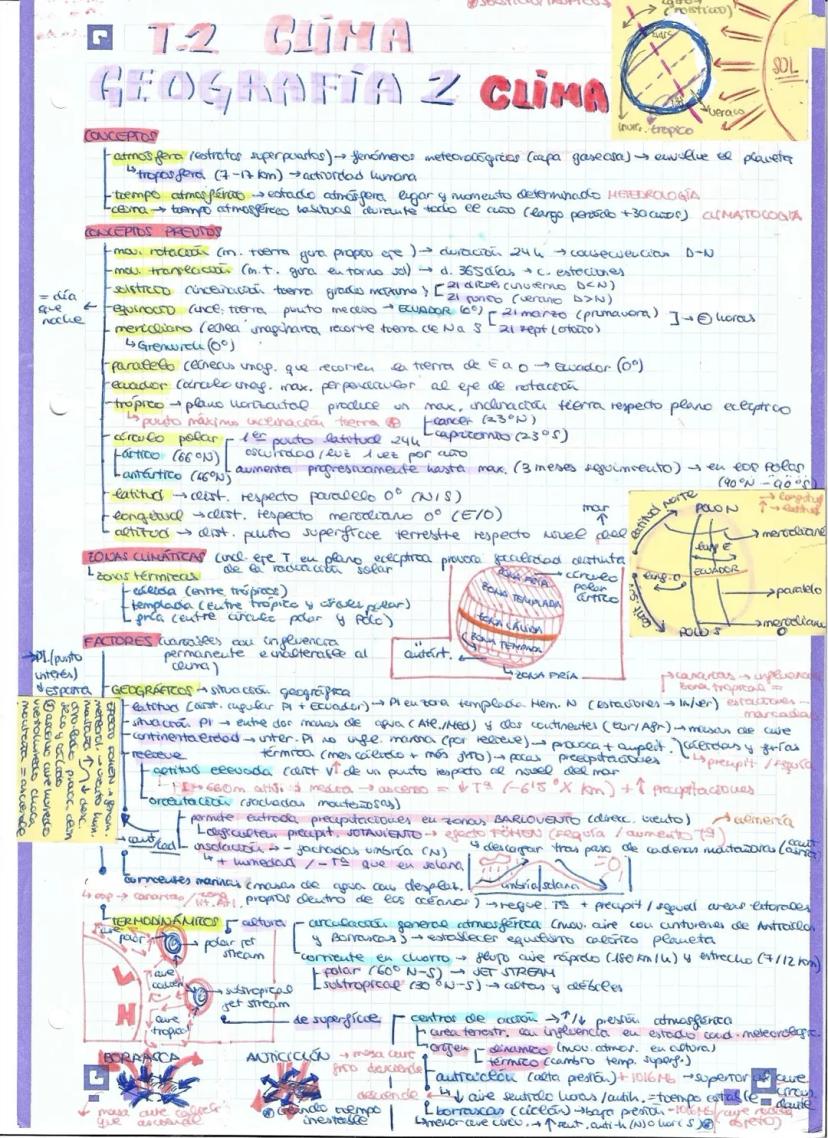 T.2 CLIMA
GEOGRAFÍA 2 CLIMA
SOL
verano
trópico
CONCEPTOS
atmosfera (estratos superpuestos) → fenómenos meteorológicos (capa gaseosa) → envuelve el planeta
↳ troposfera (7-17 km) → actividad humana
tiempo atmosférico → estado atmosfera lugar y momento determinado METEOROLOGÍA
clima → tiempo atmosférico habitual durante todo el año (largo periodo +30 años) CLIMATOLOGÍA
CONCEPTOS PREVIOS
mov. rotación (m. tierra gira propio eje) → duración 24h → consecuencias D-N
mov. translación (m.t. gira entorno sol) → d. 365 días → c. estaciones
solsticio (inclinación tierra grado máximo) 21 dicbre (invierno D<N)
21 junio (verano D>N)
= día que noche
equinocio (incl. tierra punto medio → ECUADOR (0º) 21 marzo (primavera)
21 sept (otoño)
horas
meridiano (línea imaginaria recorre tierra de N a S
↳ Grenwich (0º)
paralelo (líneas imag. que recorren la tierra de E a O → Ecuador (0º)
ecuador (círculo imag. max. perpendicular al eje de rotación
trópico → plano horizontal produce un max. inclinación tierra respecto plano eclíptico
↳ punto máximo inclinación tierra
cancer (23ºN)
capricornio (23ºS)
círculo polar 1er punto latitud 24h
ártico (66ºN) oscuridad/luz 1 vez por año
antártico (46ºN) aumenta progresivamente hasta max. (3 meses seguimiento) → en los Polos
(90ºN - 90ºS)
latitud → dist. respecto paralelo 0º (N/S)
longitud → dist. respecto meridiano 0º (E/O)
altitud → dist. punto superficie terrestre respecto nivel del mar
latitud NORTE
POLO N
→ longitud
↑ latitud
meridiano
long E
ECUADOR
long. O
paralelo
meridiano
POLO S
ZONAS CLIMÁTICAS (incl. eje T en plano eclíptica provoca
distinta
de la radiación solar
↳ zonas térmicas
cálida (entre trópicos)
templada (entre trópico y círculo polar)
fría (entre círculo polar y Polo)
ZONA FRÍA
ZONA TEMPLADA
ZONA CÁLIDA
ZONA TEMPLADA
ZONA FRÍA
círculo polar ártico
antárt.
FACTORES (variables con influencia
permanente e inalterable al
clima)
PI (punto interés)
España
GEOGRÁFICOS → situación geográfica
canarias → influencia
zona tropical =
estaciones
marcadas
latitud (dist. angular PI + Ecuador) → PI en zona templada Hem. N (estaciones → In/ver)
situación PI → entre dos masas de agua (Atl./Med) y dos continentes (Eur/Afr) → masas de aire
continentalidad → inter. PI no infl. marina (por relieve) → provoca + amplit. cálidas y frías
térmica (mes cálido + más frío) → pocas precipitaciones
relieve
altitud elevada (dist V de un punto respecto al nivel del mar
660m altit. media → ascenso = ↓ Tª (-6'5ºX km) + ↑ precipitaciones
orientación (fachadas montañosas)
permite entrada precipitaciones en zonas BARLOVENTO (direc. viento)
→ almería
dificulten precipit. SOTAVENTO → efecto FÖHEN (sequía / aumento Tª)
↳ descargar tras paso de cadenas montañosas
insolación → - fachadas umbría (N)
↳ + humedad / - Tª que en solana
umbría solana
corrientes marinas (masas de agua con desplaz.
propios dentro de los océanos) → regul. Tª + precipit / sequal areas litorales
TERMODINÁMICOS
altura
circulación general atmosférica (mov. aire con cinturones de Anticiclón
y Borrascas) → establecer equilibrio calórico planeta
corriente en chorro → flujo aire rápido (180 km/h) y estrecho (7/12 km)
polar (60º N-S) → JET STREAM
subtropical (30º N-S) → altas y débiles
aire polar
polar jet stream
subtropical jet stream
aire tropical
de superficie
centros de acción → ↑/↓ presión atmosférica
area terrestr. con influencia en estado cond. meteorológic.
origen dinámico (mov. atmos. en altura)
térmico (cambio temp. superf.)
anticiclón (alta presión) + 1016 Mb → superior al aire
↳ aire sentido horas / antih. = tiempo estable
borrascas (ciclón) → baja presión - 1016 Mb
BORRASCA
ANTICICLÓN → masa aire
frío desciende
↓ masa aire caliente
que asciende
creando tiempo
inestable